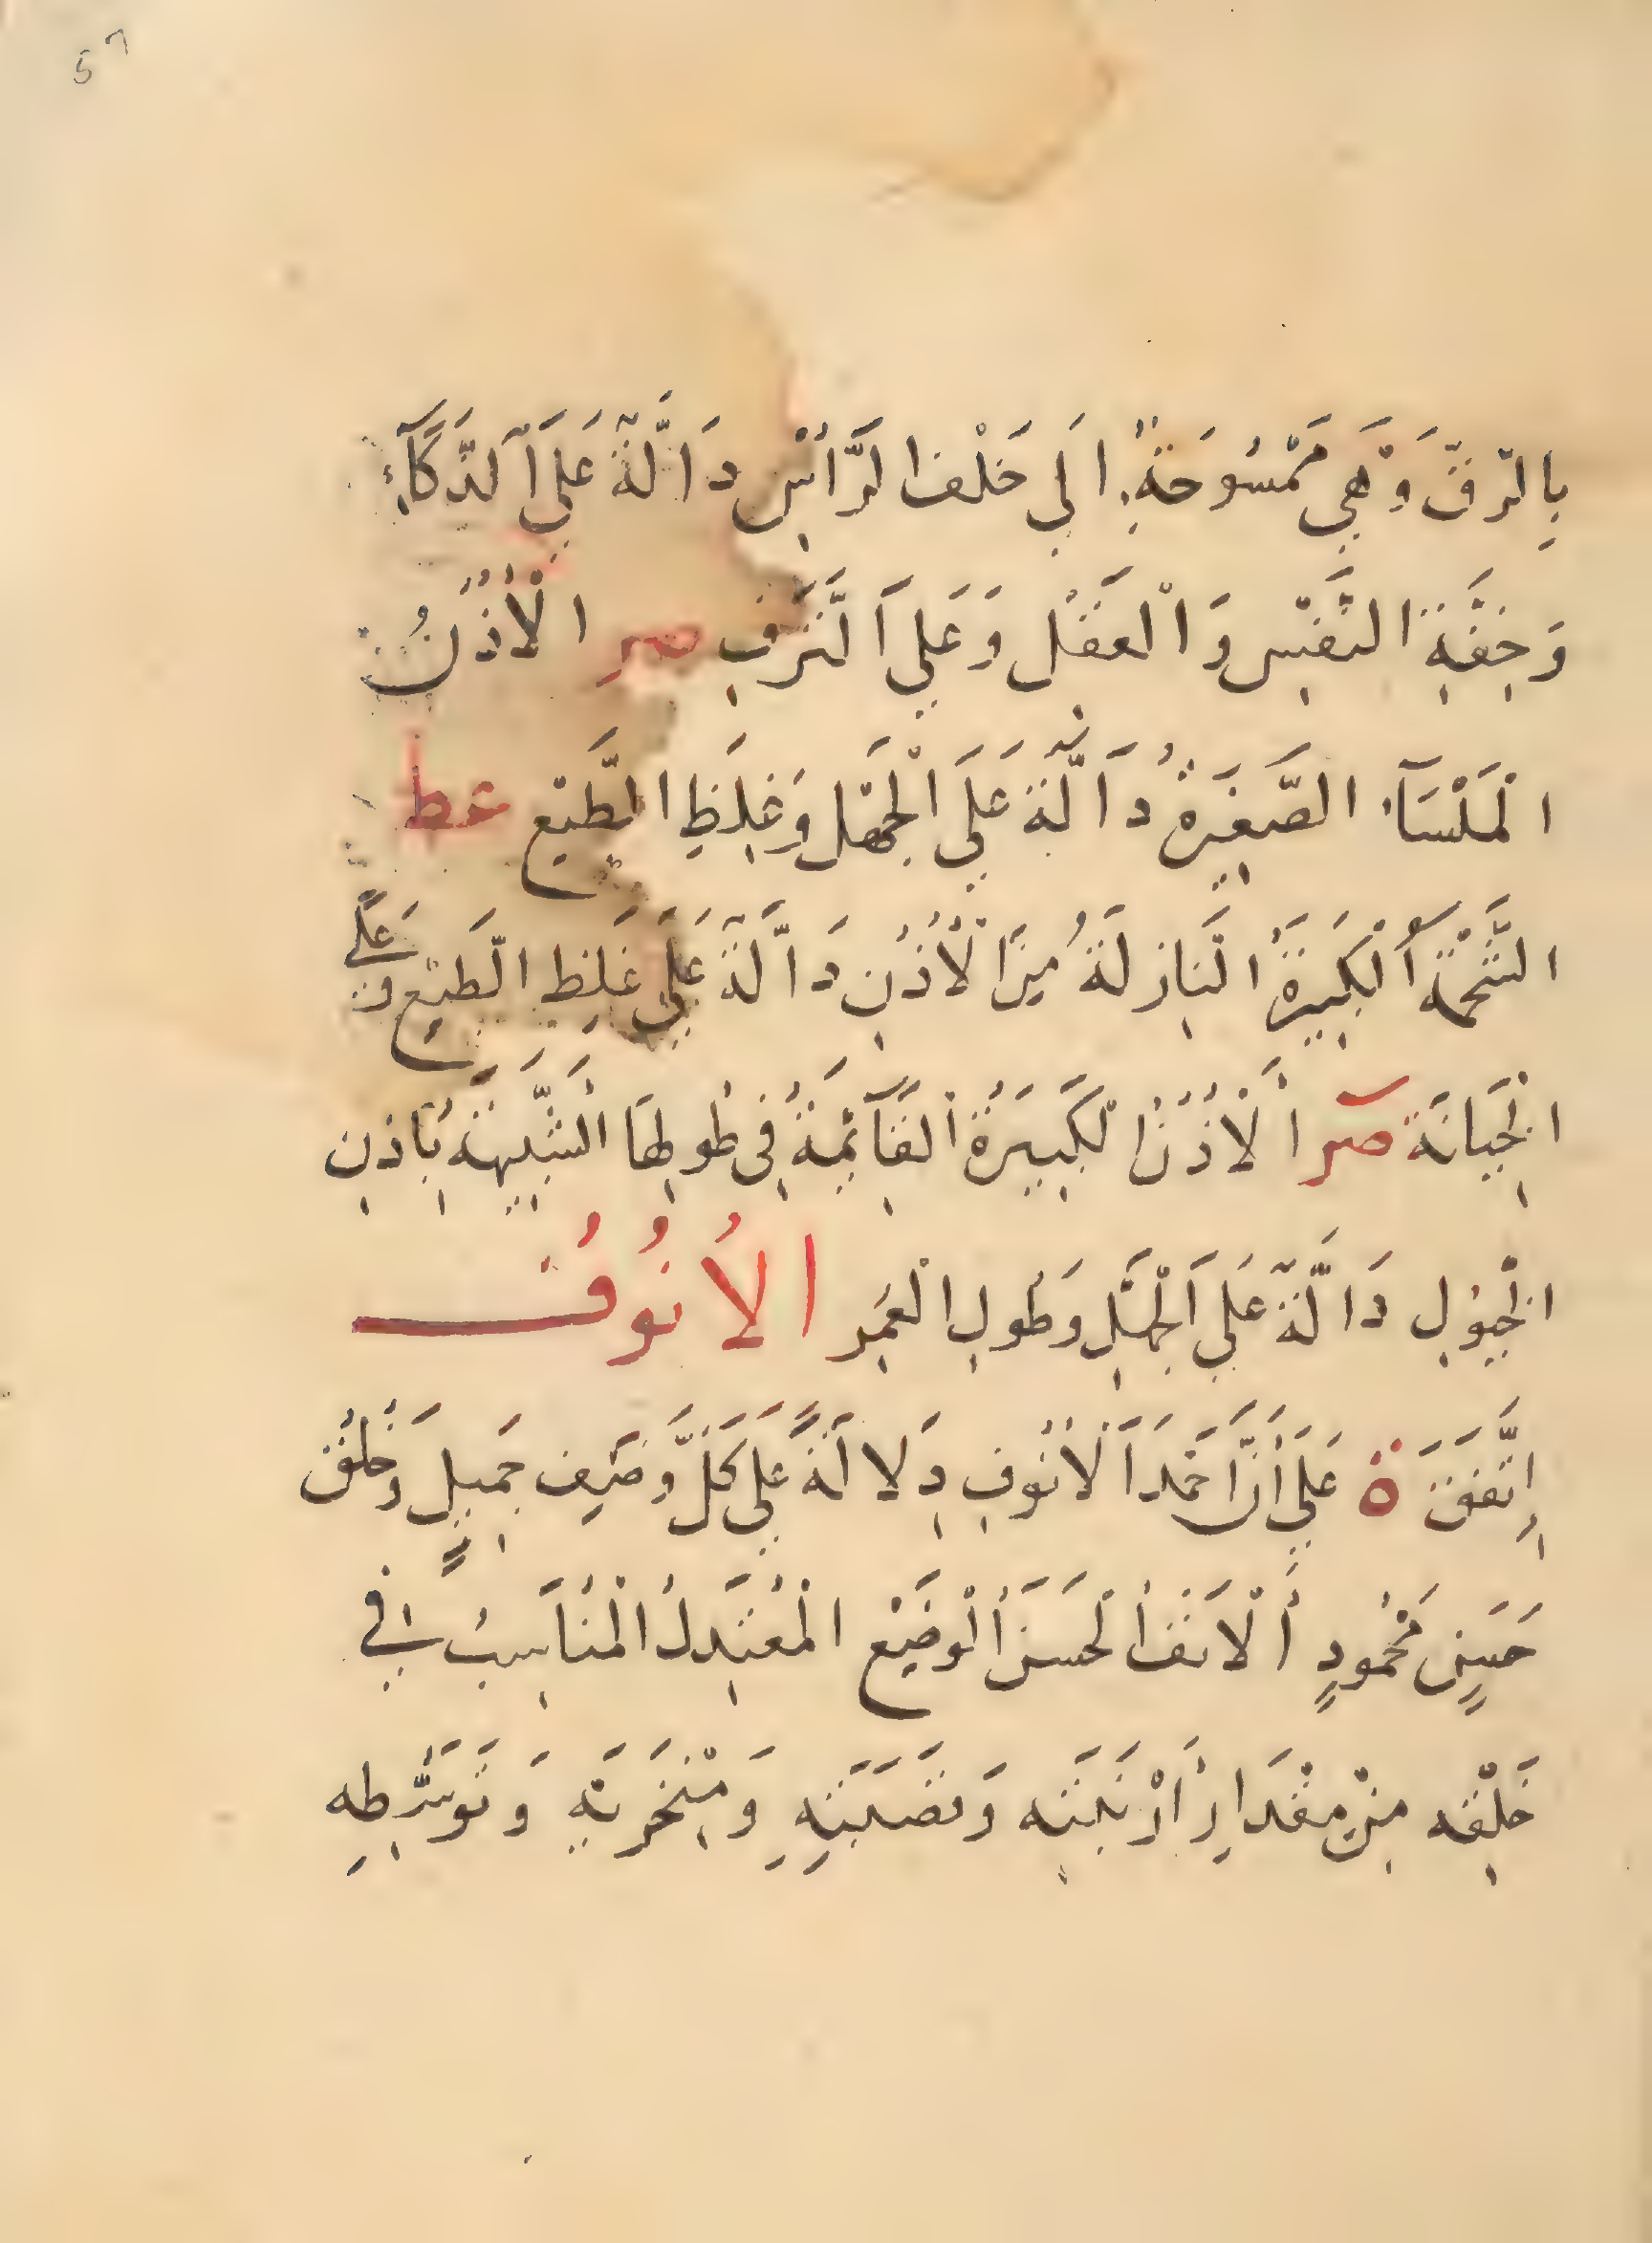 بِالترقّ وَهَي مَمْسُوحَةٌ الَي خَلْف الرَّأسْ دَالَّةٌ عَلي الذَكآءِ
وَخِفَّةِ النَفسِ وَالْعَقل وَعَلي الشَرَفِ صر الْأُذُنُ
المَلْسَآء الصَّغِيَرةُ دَالَّةٌ عَلَي الْجَهْل وَغِلَظِ الطَبْع عط
الشَّحْمَةُ الْكَبِيَرةُ النَازلَةُ مِنَ الْأُذُنِ دَالَّةٌ عَلَي غِلَظِ الطَبْع وَعَلَى
الْخِيَانَة صر الْأُذُنُ الكَبِيَرةُ القَآئِمَةُ فِى طُولِهَا الشَّبِيهَةُ بِأذنِ
الْخيُولِ دَالَّةٌ عَلَي الْجَهْلِ وَطُولِ الْعُمر الأُنُوُفُ
اِتَّفَقَتَ ة عَلَي أنَّ احَمَدَ الْأنُوفِ دِلالَةً عَلي كُلّ وَصْف جَمِيلٍ وَخُلُق
حَسَنٍ مَحْمُودٍ الْأنفُ الْحَسَنُ الْوَضْع الْمُعْتَدِلُ الْمُنَاسِبُ في
خَلْقِه مِنْ مِقْدَارِ أرْنَبَتِه وَقصَبَتِهِ وَمِنْخَرَيْهِ وَتوَسُّطِهِ